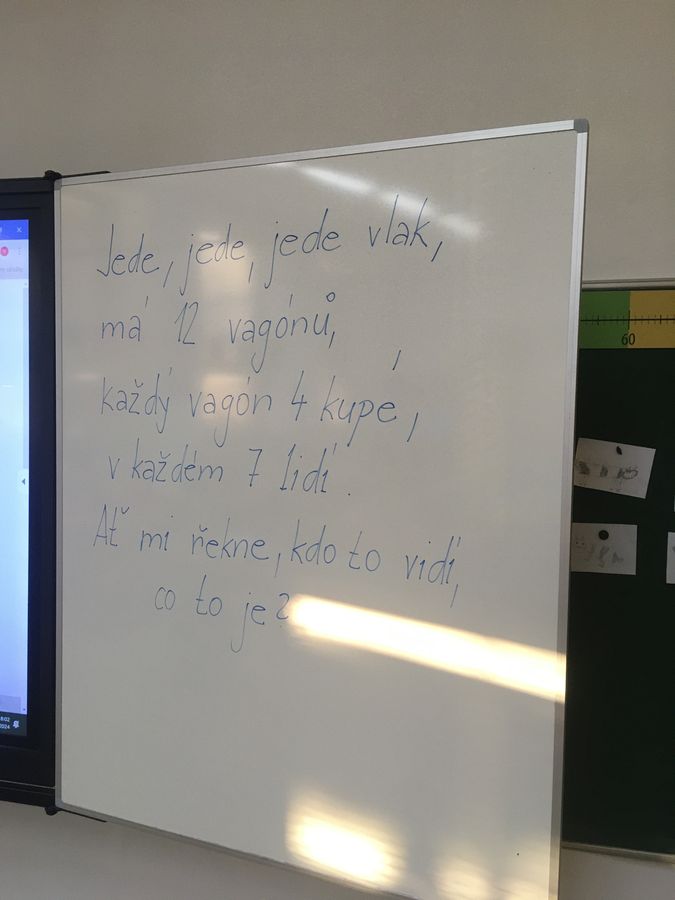 Jede, jede, jede vlak,
má 12 vagónů,
každý vagón 4 kupé,
v každém 7 lidí.
Ať mi řekne, kdo to vidí,
co to je?
60
8:02
2024